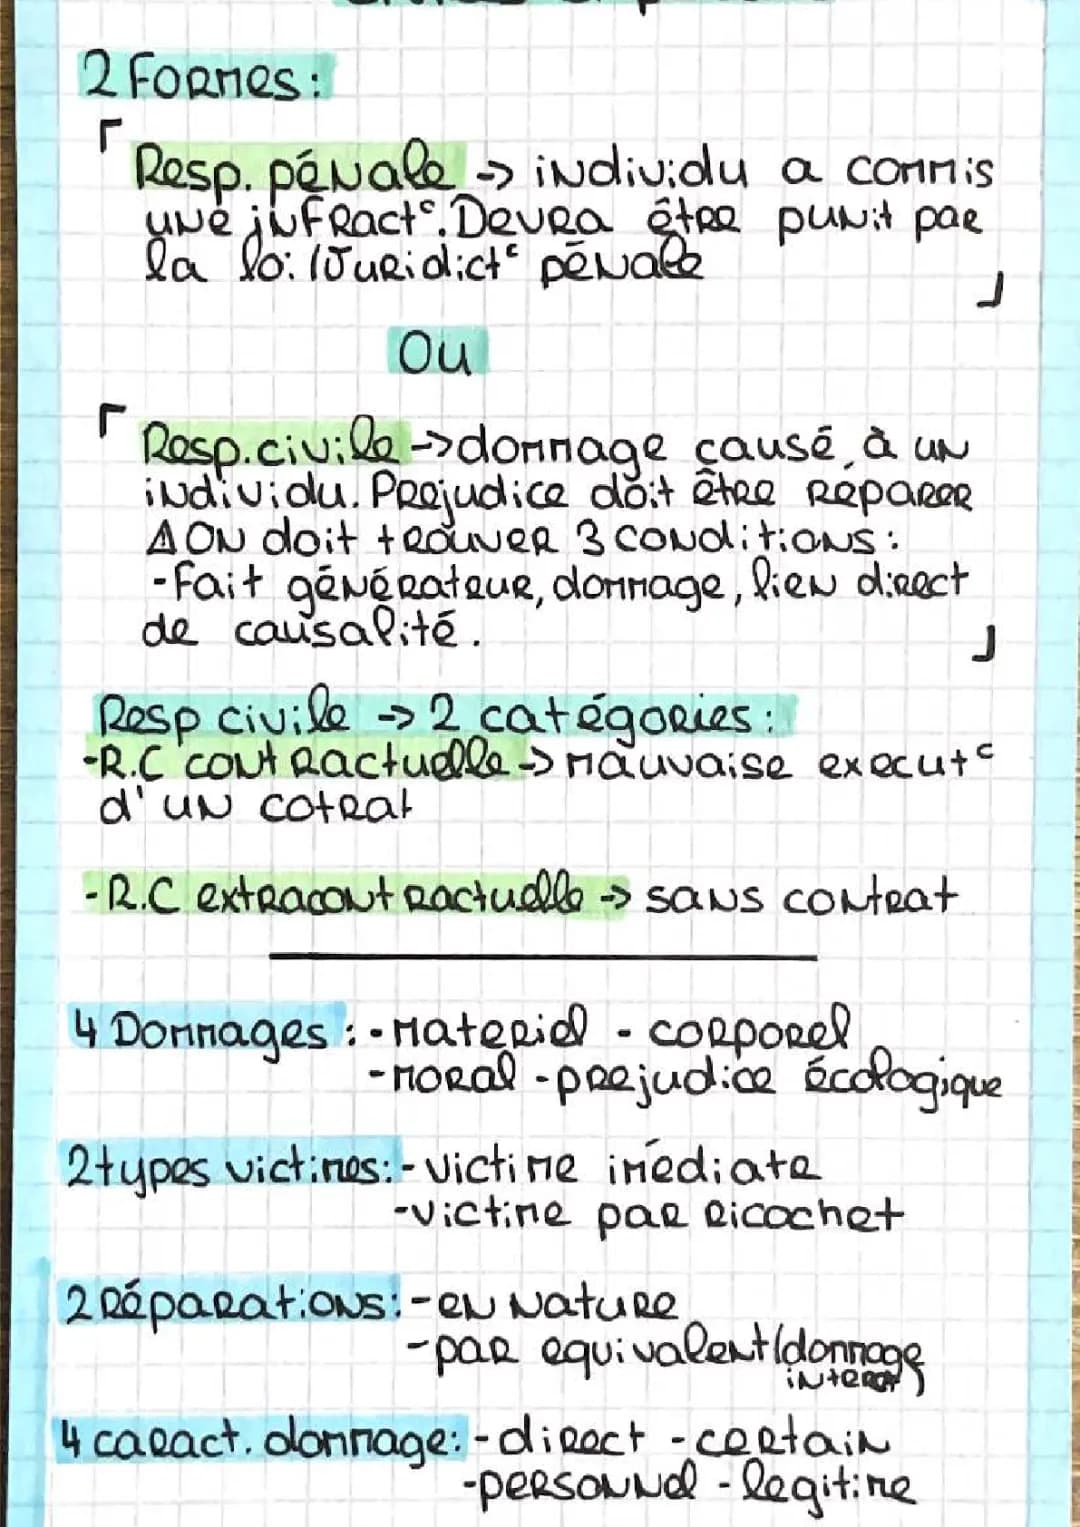 2 Formes :
Resp. pénale -> individu a commis
une infract°. Devra être punit par
la loi (Juridict° pénale
Ou
Resp. civile -> dommage causé à un
individu. Prejudice doit être réparer
⚠ On doit trouver 3 conditions :
- Fait générateur, dommage, lien direct
de causalité.
Resp civile -> 2 catégories :
- R.C contractuelle -> mauvaise execut°
d'un cotrat
- R.C extracontractuelle -> sans contrat
4 Dommages : - materiel - corporel
- moral - prejudice écologique
2 types victimes : - victime imédiate
- victime par ricochet
2 Réparations : - en nature
- par equivalent (dommage
4 caract. dommage : - direct - certain
- personnel - legitime